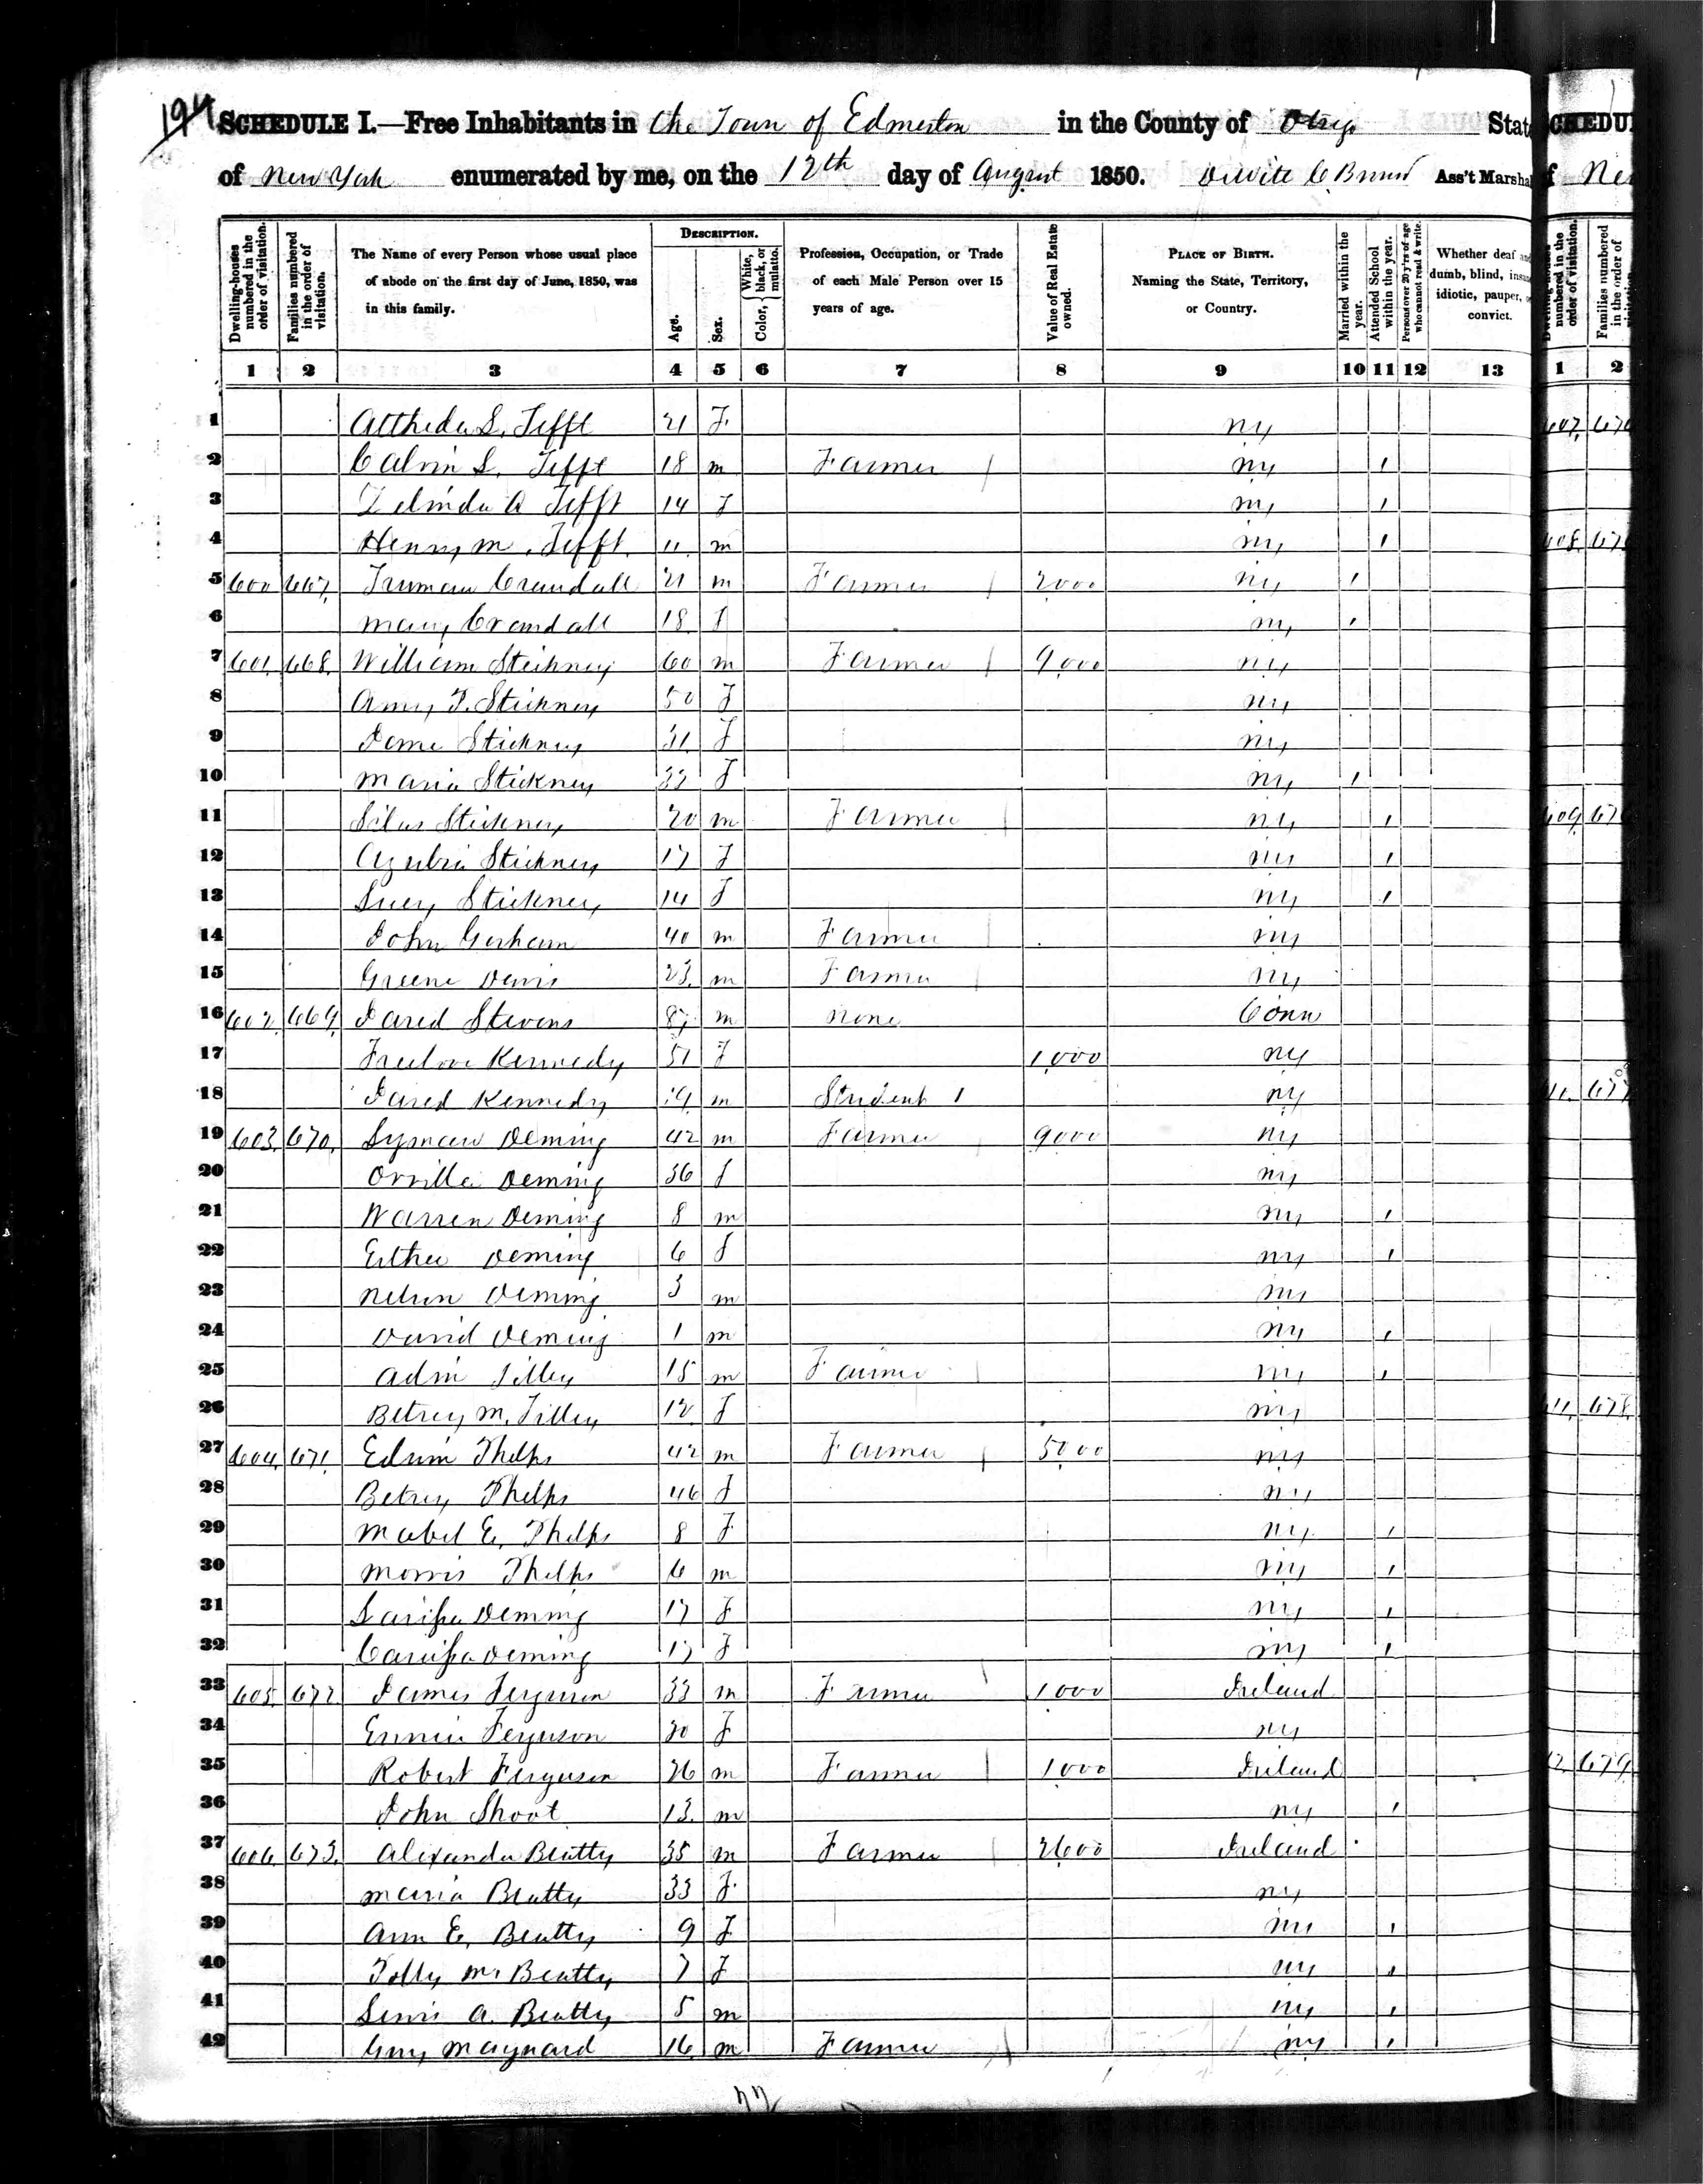 194
SCHEDULE I.—Free Inhabitants in the Town of Edmeston in the County of Otsego State
of New York enumerated by me, on the 12th day of August 1850. Ass't Marshal
Dwelling-houses numbered in the order of visitation. Families numbered in the order of visitation. The Name of every Person whose usual place of abode on the first day of June, 1850, was in this family. DESCRIPTION. Age. Sex. Color, White, black, or mulatto. Profession, Occupation, or Trade of each Male Person over 15 years of age. Value of Real Estate owned. PLACE OF BIRTH. Naming the State, Territory, or Country. Married within the year. Attended School within the year. Persons over 20 y'rs of age who cannot read & write. Whether deaf and dumb, blind, insane, idiotic, pauper, or convict.
1 2 3 4 5 6 7 8 9 10 11 12 13
1 S. Tefft 21 F. NY
2 Calvin S. Tefft 18 m Farmer NY 1
3 A Tefft 14 F NY 1
4 Henry M. Tefft 11 m NY 1
5 600 667 Truman Crandall 21 m Farmer 2000 NY 1
6 Mary Crandall 18 F NY 1
7 601 668 William Stickney 60 m Farmer 9000 NY
8 Amy T. Stickney 50 F NY
9 Stickney 31 F NY
10 Maria Stickney 33 F NY 1
11 Silas Stickney 20 m Farmer NY 1
12 Azubia Stickney 17 F NY 1
13 Lucy Stickney 14 F NY 1
14 John Gorham 40 m Farmer NY
15 Greene Davis 23 m Farmer NY
16 602 669 Jared Stevens 87 m none Conn
17 Freelove Kennedy 51 F 1000 NY
18 Jared Kennedy 19 m Student 1 NY
19 603 670 Lyman Deming 42 m Farmer 9000 NY
20 Orvilla Deming 36 F NY
21 Warren Deming 8 m NY 1
22 Esther Deming 6 F NY 1
23 Nelson Deming 3 m NY
24 David Deming 1 m NY 1
25 Tilley 15 m Farmer NY 1
26 Betsey M. Tilley 12 F NY
27 604 671 Edwin Phelps 42 m Farmer 5000 NY
28 Betsey Phelps 46 F NY
29 Mabel E. Phelps 8 F NY 1
30 Morris Phelps 6 m NY 1
31 Larissa Deming 17 F NY 1
32 Carissa Deming 17 F NY 1
33 605 672 James Ferguson 33 m Farmer 1000 Ireland
34 Ferguson F NY
35 Robert Ferguson 26 m Farmer 1000 Ireland
36 John Shoot 13 m NY 1
37 606 673 Alexander Beatty 35 m Farmer 2600 Ireland
38 Maria Beatty 33 F NY
39 Ann E. Beatty 9 F NY 1
40 Polly M. Beatty 7 F NY 1
41 Lewis A. Beatty 5 m NY 1
42 Guy Maynard 16 m Farmer NY 1
77